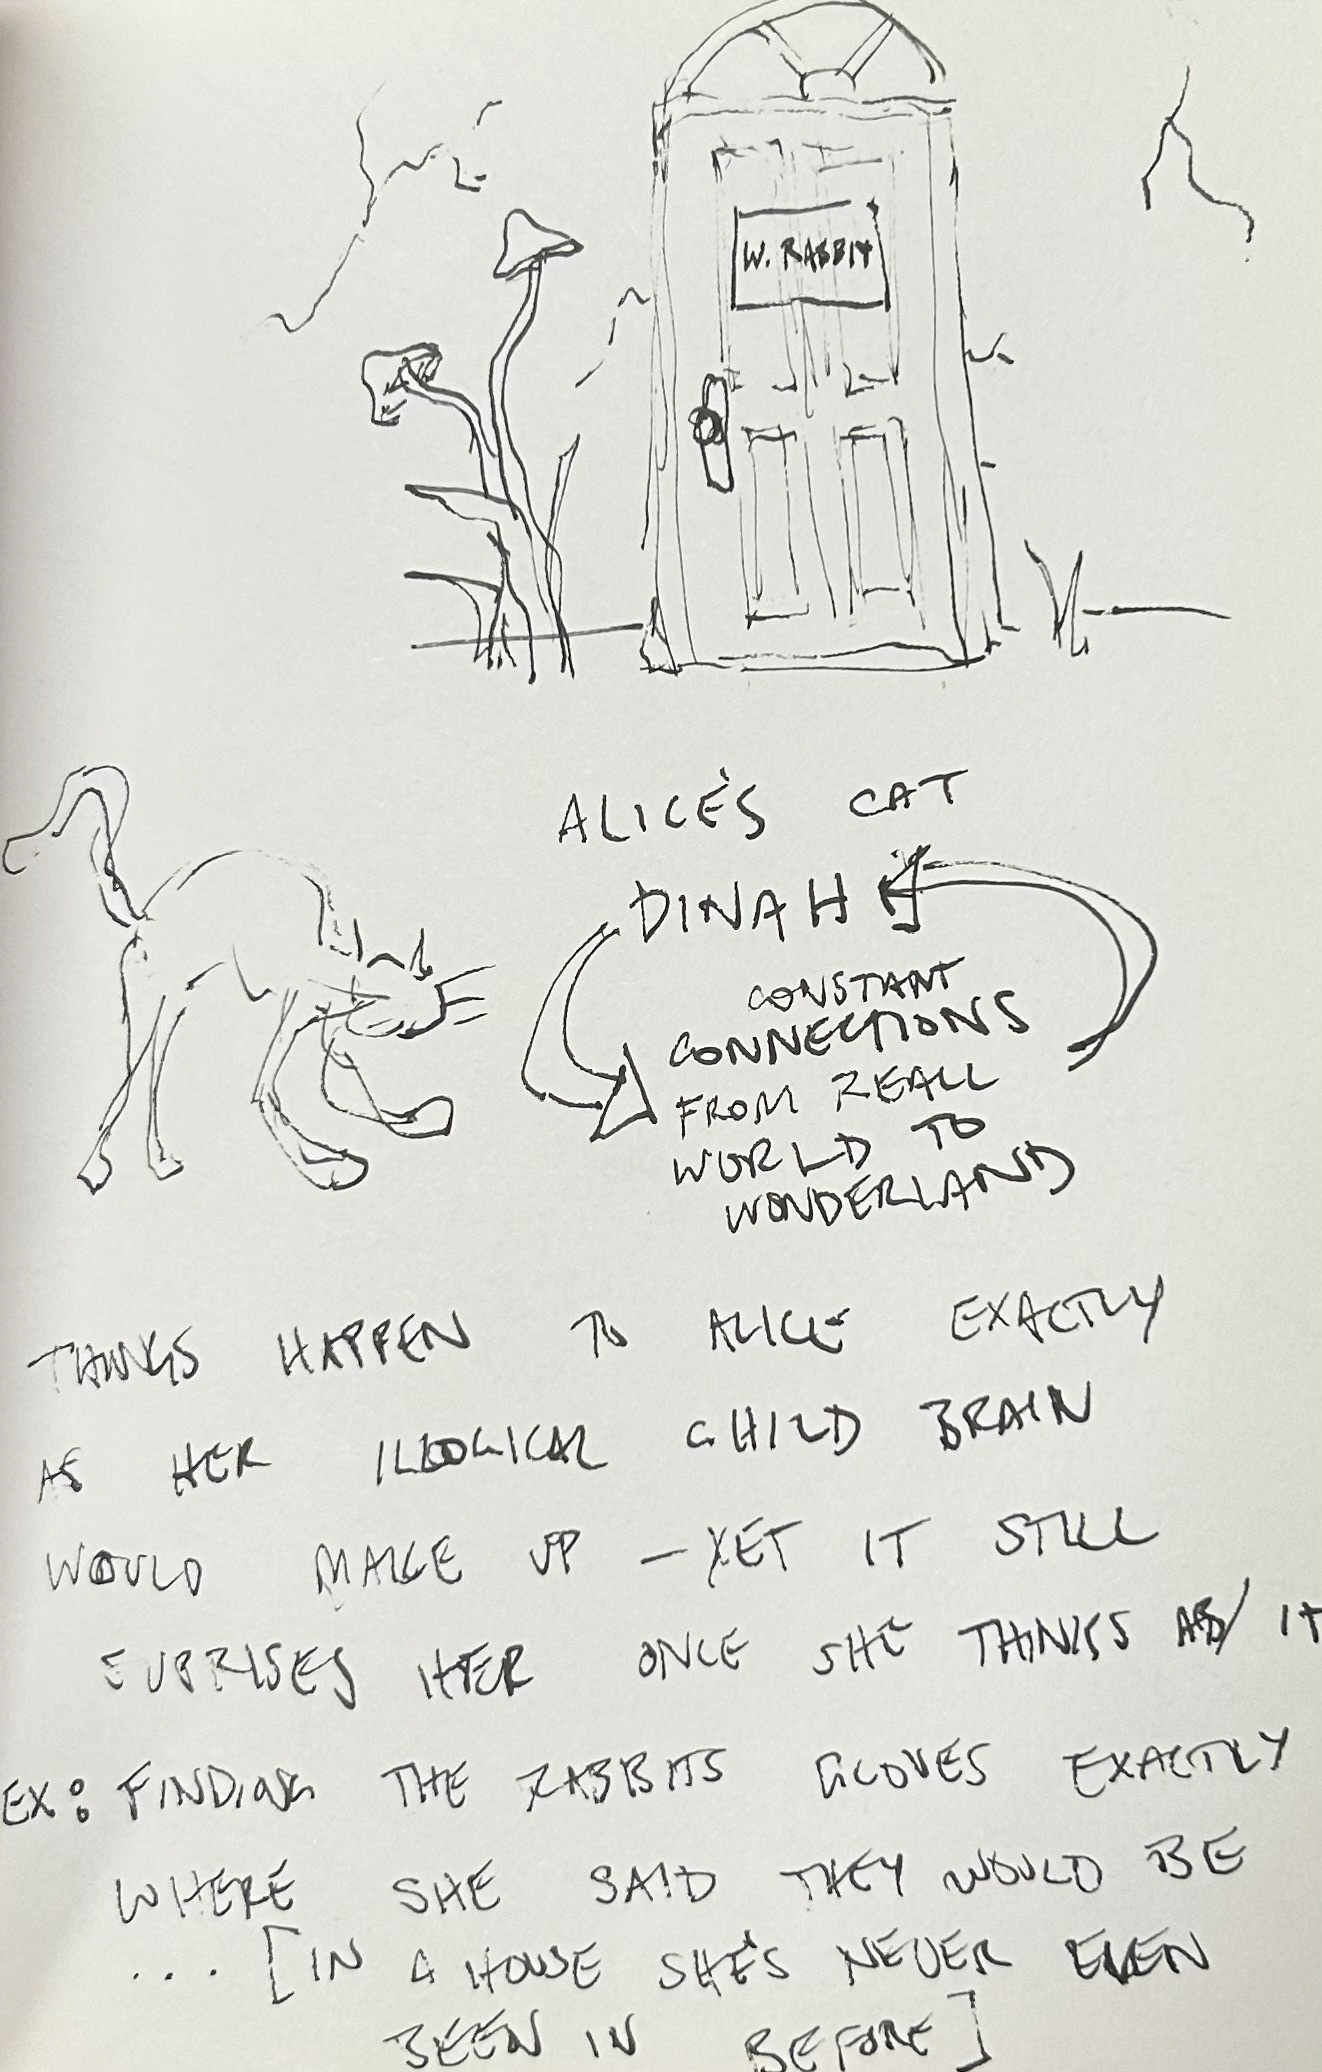 W. RABBIT
ALICE'S CAT
DINAH
CONSTANT
CONNECTIONS
FROM REALL
WORLD TO
WONDERLAND
THINGS HAPPEN TO ALICE EXACTLY
AS HER ILLOGICAL CHILD BRAIN
WOULD MAKE UP – YET IT STILL
SUPRISES HER ONCE SHE THINKS AB/ IT
EX: FINDING THE RABBITS GLOVES EXACTLY
WHERE SHE SAID THEY WOULD BE
... [IN A HOUSE SHE'S NEVER EVEN
BEEN IN BEFORE]